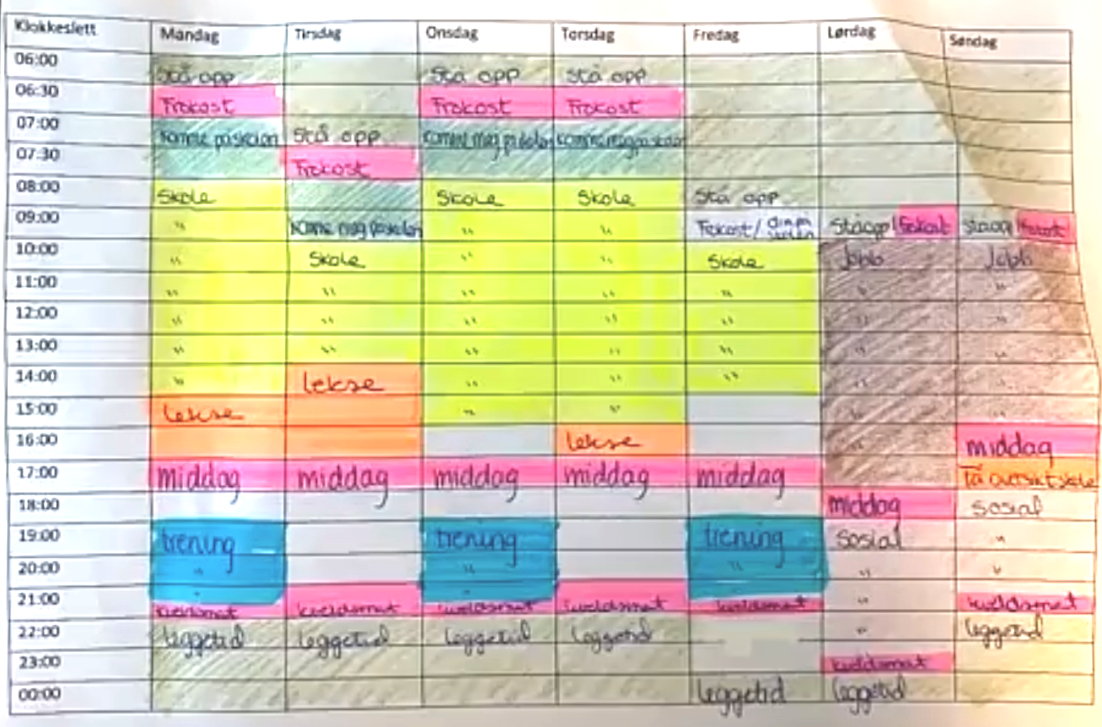 Klokkeslett Mandag Tirsdag Onsdag Torsdag Fredag Lørdag Søndag
06:00 Stå opp Stå opp Stå opp
06:30 Frokost Frokost Frokost
07:00 Komme på skolen Stå opp Komme meg på skolen Komme meg på skolen
07:30 Frokost
08:00 Skole Skole Skole Stå opp
09:00 " Komme meg på skolen " " Frokost/ Stå opp/ Frokost Stå opp/ Frokost
10:00 " Skole " " Skole Jobb Jobb
11:00 " " " " " " "
12:00 " " " " " " "
13:00 " " " " " " "
14:00 " lekse " " " " "
15:00 lekse " " " "
16:00 lekse " middag
17:00 middag middag middag middag middag Få oversikt skole
18:00 middag sosial
19:00 trening trening trening sosial "
20:00 " " " " "
21:00 kveldsmat kveldsmat kveldsmat kveldsmat kveldsmat " kveldsmat
22:00 leggetid leggetid leggetid leggetid " leggetid
23:00 kveldsmat
00:00 leggetid leggetid